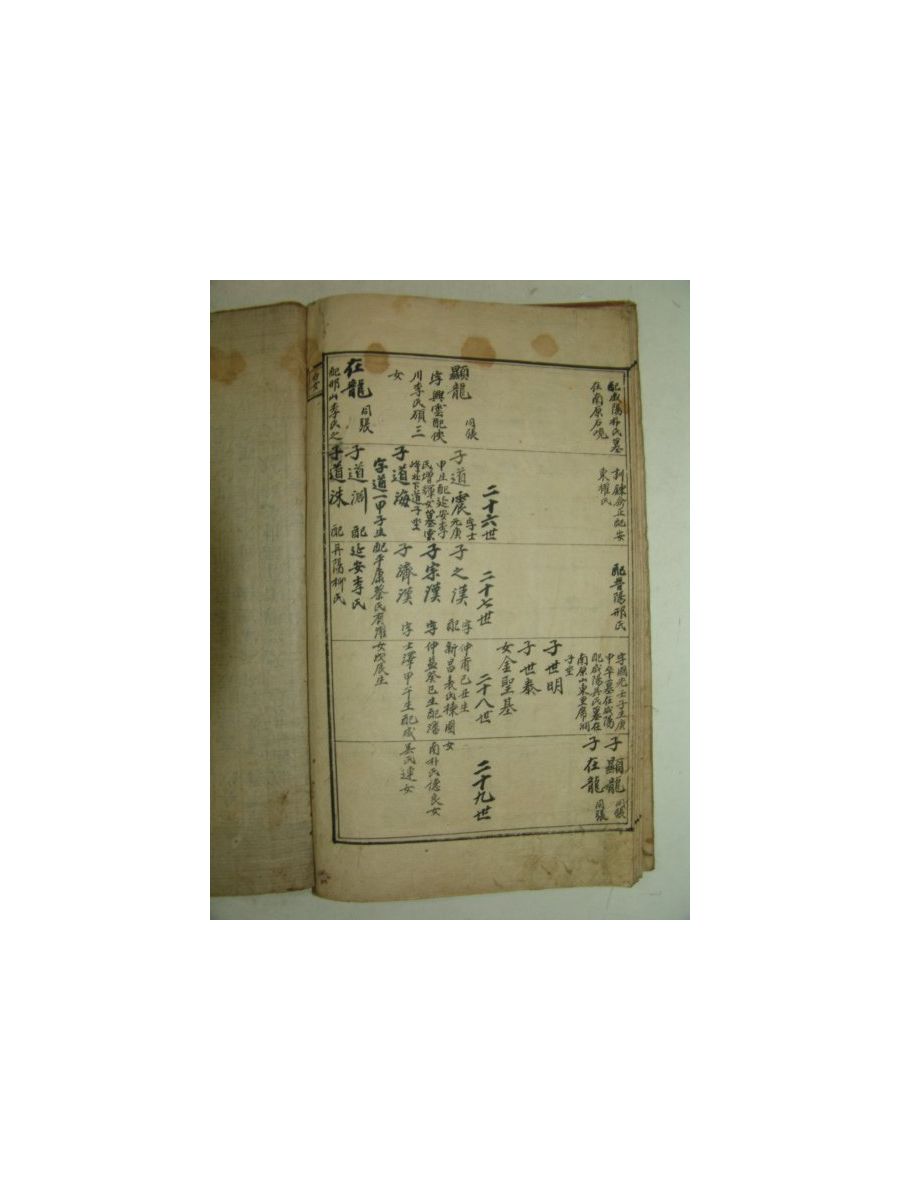 配咸陽朴氏墓
在南原石峴
訓鍊僉正配安
東權氏
配晋陽邢氏
字國光壬子生庚
申卒墓在咸陽
配咸陽吳氏墓在
南原山東里席洞
子坐
子顯龍 同張
子在龍 同張
顯龍 同張
字興雲配陜
川李氏碩三
女
二十六世
二十七世
二十八世
二十九世
子世明
子世泰
女金聖基
子道震 字士元庚
甲生配延安李
氏增輝女墓雲
峰北下道子坐
子之漢 字仲甫己丑生
配新昌表氏棟國女
子宗漢 字仲益癸巳生配潘
南朴氏德良女
子道海
字道一甲子生配平康蔡氏有濰女戊辰生
子濟漢 字士澤甲午生配咸
吳氏達女
在龍 同張
配昍山李氏之
子道淵 配延安李氏
子道洙 配丹陽柳氏